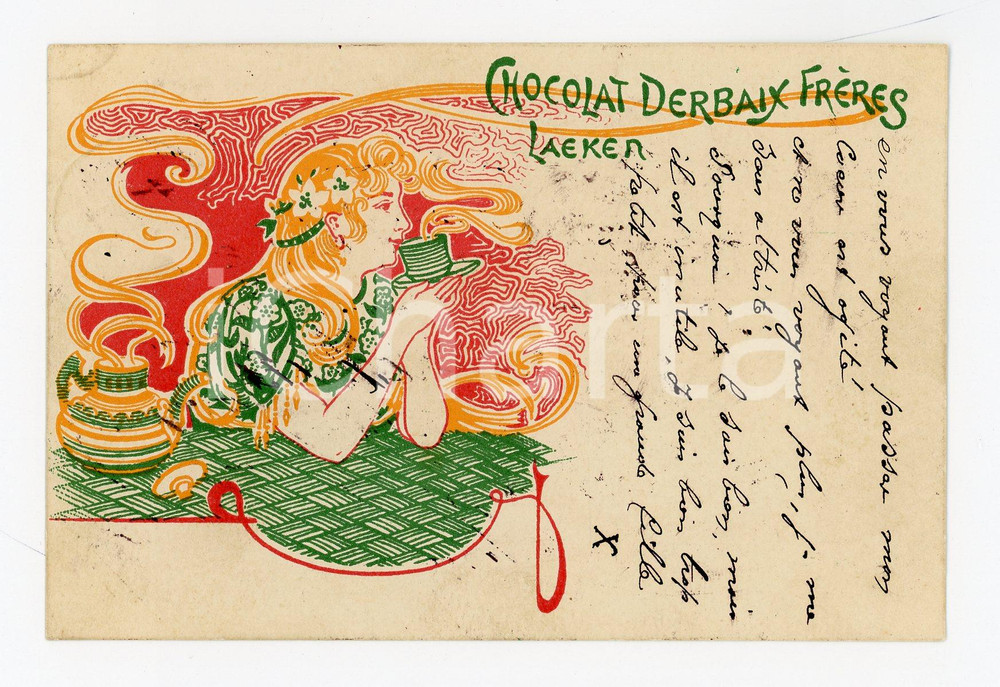 CHOCOLAT DERBAIX FRÈRES
LAEKEN
en vous voyant passer mon
Coeur est agité!
et ne vous voyant plus, je me
sens attristé!
Pourquoi, je le sais bon, mais
il est inutile, je suis bien trop
petit pour une grande fille
X